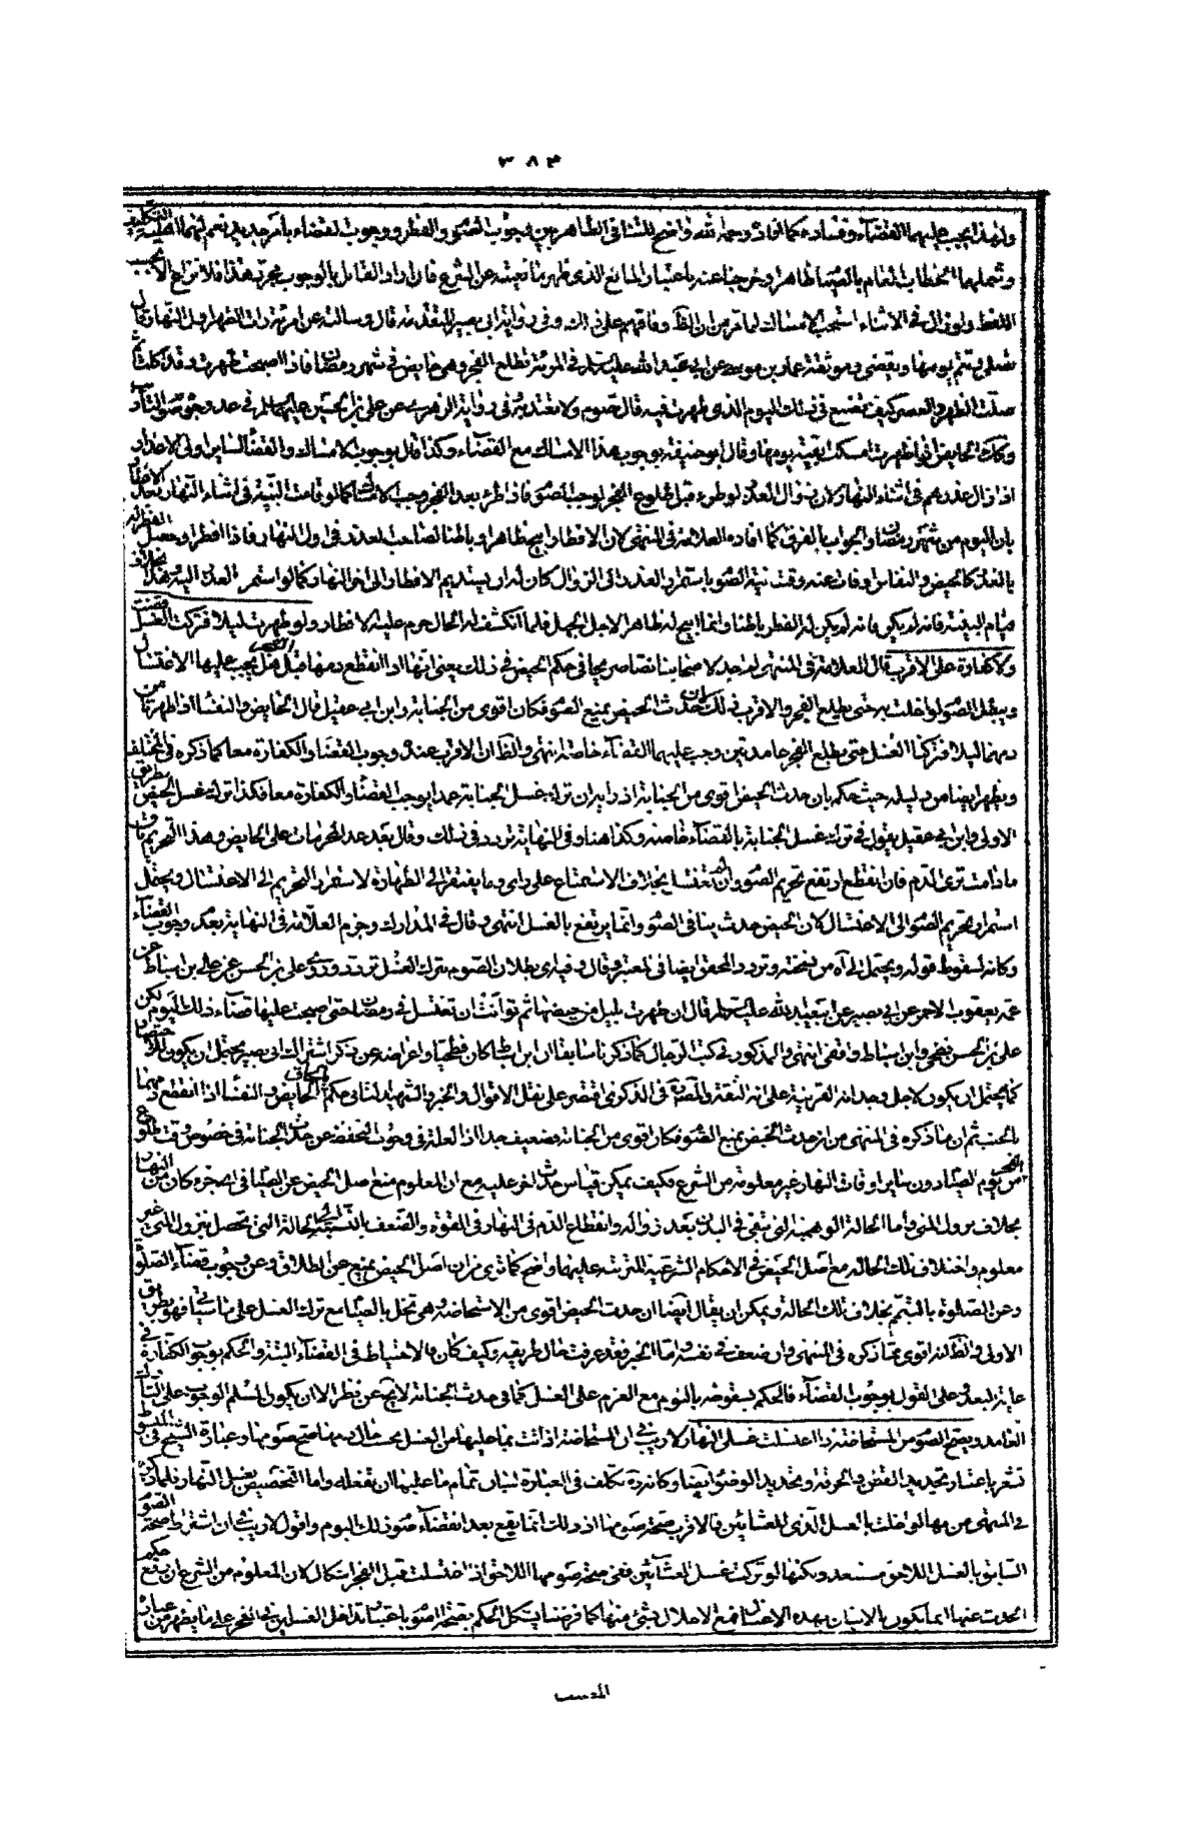 ٣٨٣
ولهذا يجب عليهما القضاء وفساده كما افاده رحمه الله واضح للتنافي الظاهر بين وجوب الصوم والفطر ووجوب القضاء بامر جديد
وشملهما الخطاب العام بالصيام ظاهرا وخرجا عنه باعتبار المانع الذي ظهر مانعيته عن الشرع فان اراد القائل بالوجوب مجرد هذا فلا نزاع الا
اللفظ ولو زال في الاثناء استحب الامساك لما مر من ان وفاقهم على ذلك وفي رواية ابي بصير قال وسالته عن امرئة رات الطهر اول النهار قال
تصلي وتتم يومها وتقضي وموثقة عمار بن موسى عن ابي عبد الله عليه السلام في المرئة تطلع الفجر وهي حايض في شهر رمضان فاذا اصبحت طهرت وقد اكلت ثم
صلت الظهر والعصر كيف تصنع في ذلك اليوم الذي طهرت فيه قال تصوم ولا تعتد به وفي رواية الزهري عن علي بن الحسين عليهما السلام في عد وجوه صوم التاديب
وكذلك الحايض اذا طهرت امسكت بقية يومها وقال ابو حنيفة بوجوب هذا الامساك مع القضاء وكذا قال بوجوب الامساك والقضاء لساير اولي الاعذار
اذا زال عذرهم في اثناء النهار لان زوال العذر لو طرء قبل طلوع الفجر لوجب الصوم فاذا طرء بعد الفجر وجب الامساك كما لو قامت البينة في اثناء النهار
بان اليوم من شهر رمضان والجواب بالفرق كما افاده العلامة في المنتهى لان الافطار ابيح ظاهرا وباطنا لصاحب العذر في اول النهار فاذا افطر
بالعذر كالحيض والنفاس او فات عنه وقت نية الصوم باستمرار العذر الى الزوال كان له ان يستديم الافطار الى اخر النهار كما لو استمر العذر اليه بخلاف
قيام البينة فانه لم يكن له الفطر باطنا وانما ابيح له ظاهرا لاجل الجهل فلما انكشف له الحال حرم عليه الافطار ولو طهرت ليلا فتركت الغسل
ولا كفارة على الاقرب قال العلامة في المنتهى لم اجد لاصحابنا نصا صريحا في حكم الحيض في ذلك يعني انها اذا انقطع دمها قبل الفجر هل يجب عليها الاغتسال
ويبطل الصوم لو اخلت به حتى يطلع الفجر والاقرب ذلك لان حدث الحيض يمنع الصوم فكان اقوى من الجنابة وابن ابي عقيل قال الحايض والنفساء اذا طهرتا من
دمهما ليلا فتركتا الغسل حتى يطلع الفجر عامدتين وجب عليهما القضاء خاصة انتهى والظاهر ان الاقرب عنده وجوب القضاء والكفارة معا كما ذكره في المختلف
ويظهر ايضا من دليله حيث حكم بان حدث الحيض اقوى من الجنابة اذ رايه ان ترك غسل الجنابة عمدا يوجب القضاء والكفارة معا فكذا ترك غسل الحيض بطريق
الاولى وابن ابي عقيل يقول في ترك غسل الجنابة بالقضاء خاصة وكذا هنا وفي النهاية تردد في ذلك وقال بعد عد المحرمات على الحايض وهذا التحريم باق
ما دامت ترى الدم فان انقطع ارتفع تحريم الصوم وان لم تغتسل بخلاف الاستمتاع على راي وما يفتقر الى الطهارة لاستمرار التحريم الى الاغتسال ويحتمل
استمرار تحريم الصوم الى الاغتسال لان الحيض حدث ينافي الصوم وانما يرتفع بالغسل انتهى وقال في المدارك وجزم العلامة في النهاية بعدم وجوب القضاء
وكانه لسقوط قوله ويحتمل الى آه من نسخته وتردد المحقق ايضا في المعتبر وقال وفي بطلان الصوم بترك الغسل تردد روى علي بن الحسن عن علي بن اسباط عن
عمه يعقوب الاحمر عن ابي بصير عن ابي عبد الله عليه السلام قال ان طهرت بليل من حيضها ثم توانت ان تغتسل في رمضان حتى اصبحت عليها قضاء ذلك اليوم لكن
علي بن الحسن فطحي وابن اسباط واقفي انتهى والمذكور في كتب الرجال كما ذكرنا سابقا ان ابن اسباط كان فطحيا واعراضه عن ذكر اشتراك ابي بصير يحتمل ان يكون للاختصار
كما يحتمل ان يكون لاجل وجدانه القرينة على انه الثقة في الذكرى اقتصر على نقل الاقوال والخبر والشهيد الثاني حكم بالحاق الحايض والنفساء اذا انقطع دمهما
بالجنب ثم ان ما ذكره في المنتهى من ان حدث الحيض يمنع الصوم فكان اقوى من الجنابة ضعيف جدا اذ العلة في وجوب التحفظ عن حدث الجنابة في خصوص وقت طلوع الفجر
من يوم الصيام دون ساير اوقات النهار غير معلومة من الشرع فكيف يمكن قياس حدث اخر عليه مع ان المعلوم منع اصل الحيض عن الصيام في اي جزء كان من النهار
بخلاف نزول المني واما الحالة الوهمية التي تبقى في البدن بعد زواله وانقطاع الدم في النهار في القوة والضعف بالنسبة الى الحالة التي تحصل بنزول المني غير
معلوم واختلاف تلك الحالة مع اصل الحيض في الاحكام الشرعية المترتبة عليهما واضح كما ترى من ان اصل الحيض يمنع عن الطلاق وعن وجوب قضاء الصلوة
وعن الصلوة بالتيمم بخلاف تلك الحالة ويمكن ان يقال ايضا ان حدث الحيض اقوى من الاستحاضة وهي تخل بالصيام مع ترك الغسل على ما سياتي فهو بطريق
الاولى والظاهر انه اقوى مما ذكره في المنتهى وان ضعف في نفسه واما الخبر فقد عرفت حال طريقه وكيف كان فالاحتياط في القضاء البتة والحكم بوجوب الكفارة في
غاية البعد وعلى القول بوجوب القضاء فالحكم بسقوطه بالنوم مع العزم على الغسل كما في حدث الجنابة لا يخ عن نظر الا ان يكون المسلم الوجوب على التارك
العامد ويصح الصوم من المستحاضة اذا اغتسلت غسلي النهار لا ريب في ان المستحاضة اذا اتت بما عليها من الغسل بحسب حال دمها صح صومها وعبارة الشيخ في المبسوط
تشعر باعتبار تجديد القطن والخرقة وتجديد الوضوء ايضا وكانه تكلف في العبارة لبيان تمام ما عليها ان تفعله واما التخصيص بغسل النهار فلما ذكره
في المنتهى من انها لو اخلت بالغسل الذي للعشائين فالاقرب صحة صومها اذ ذلك انما يقع بعد انقضاء صوم ذلك اليوم واقول لا ريب في ان اشتراط صحة الصوم
السابق بالغسل اللاحق مستبعد ولكنها لو تركت غسل العشائين ففي صحة صومها اللاحق اذا اغتسلت قبل الفجر اشكال لان المعلوم من الشرع ان حكم رفع
الحدث عنها انما يكون بالاتيان بهذه الاغسال فمع الاخلال بشئ منها كما فرضنا يشكل الحكم بصحة الصوم باعتبار تداخل الغسلين في الفجر على ما يظهر من عبارة